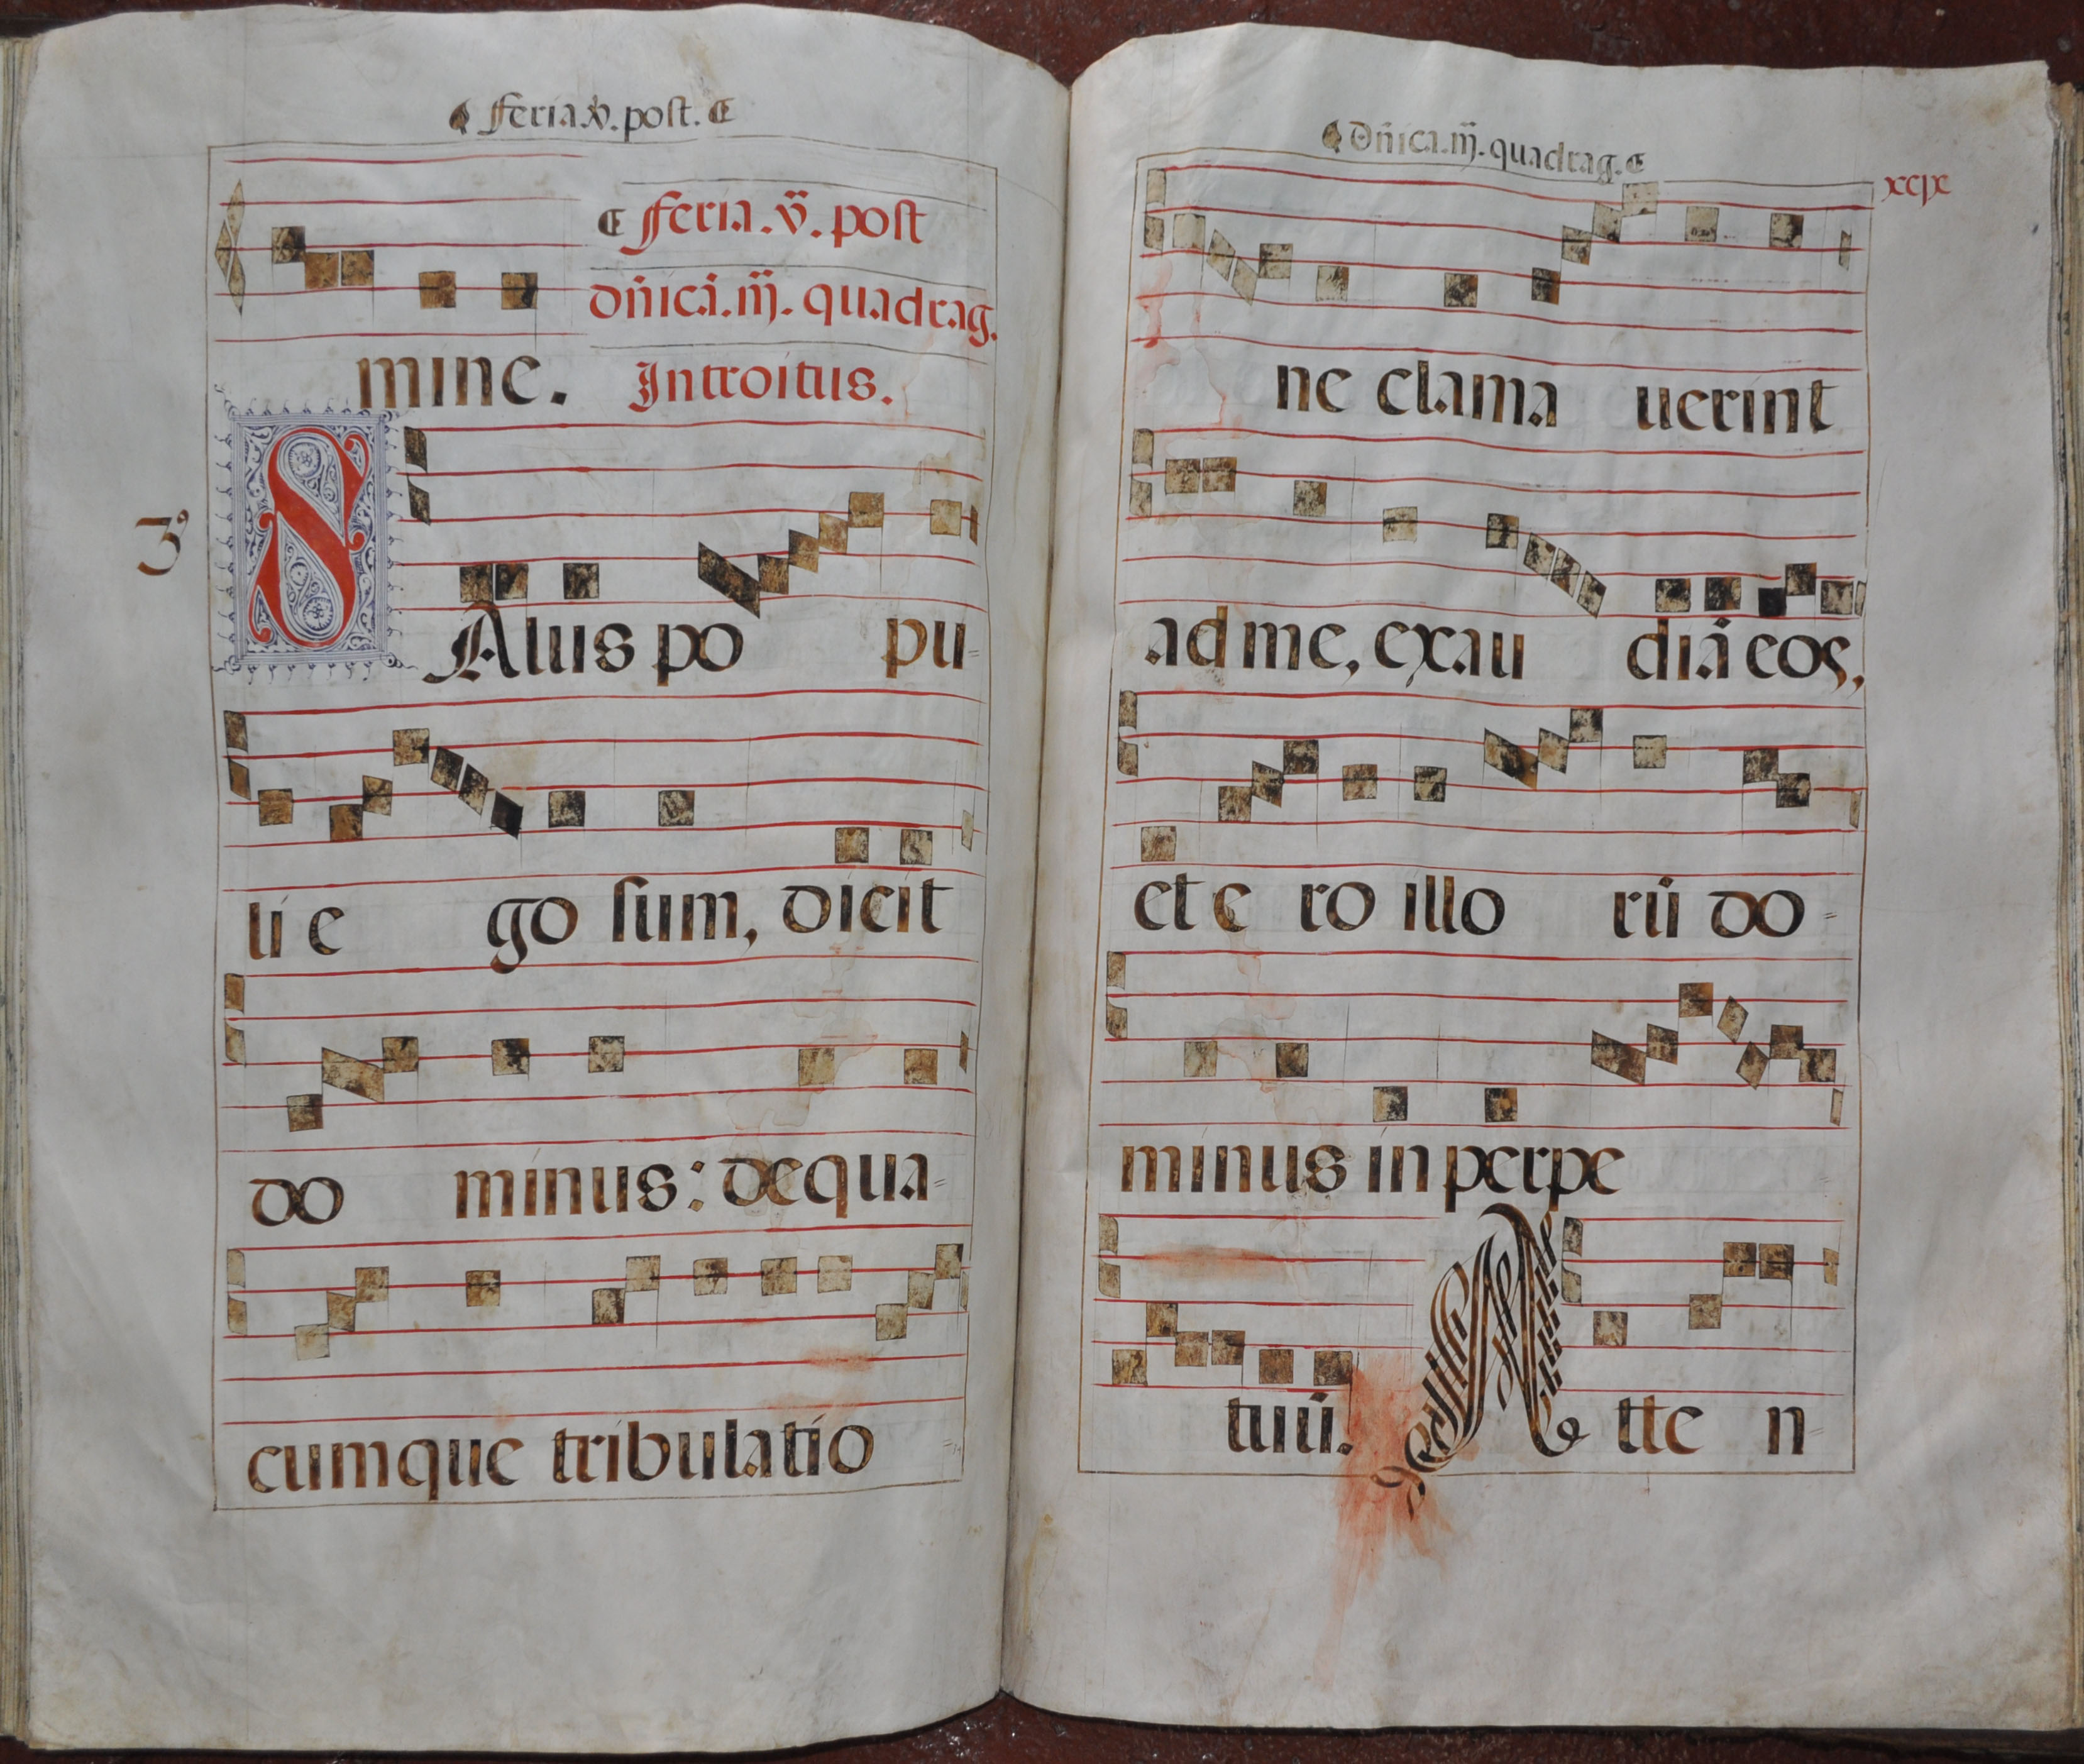 feria.v. post.
feria. v. post
dñica. iij. quadrag.
mine. Introitus.
3º
SAlus po pu=
li e go sum, dicit
do minus: de qua=
cumque tribulatio =
Dñica. iij. quadrag.
xcix
ne clama uerint
ad me, exau diã eos,
et e ro illo rũ do=
minus in perpe =
tuũ. A tte n=